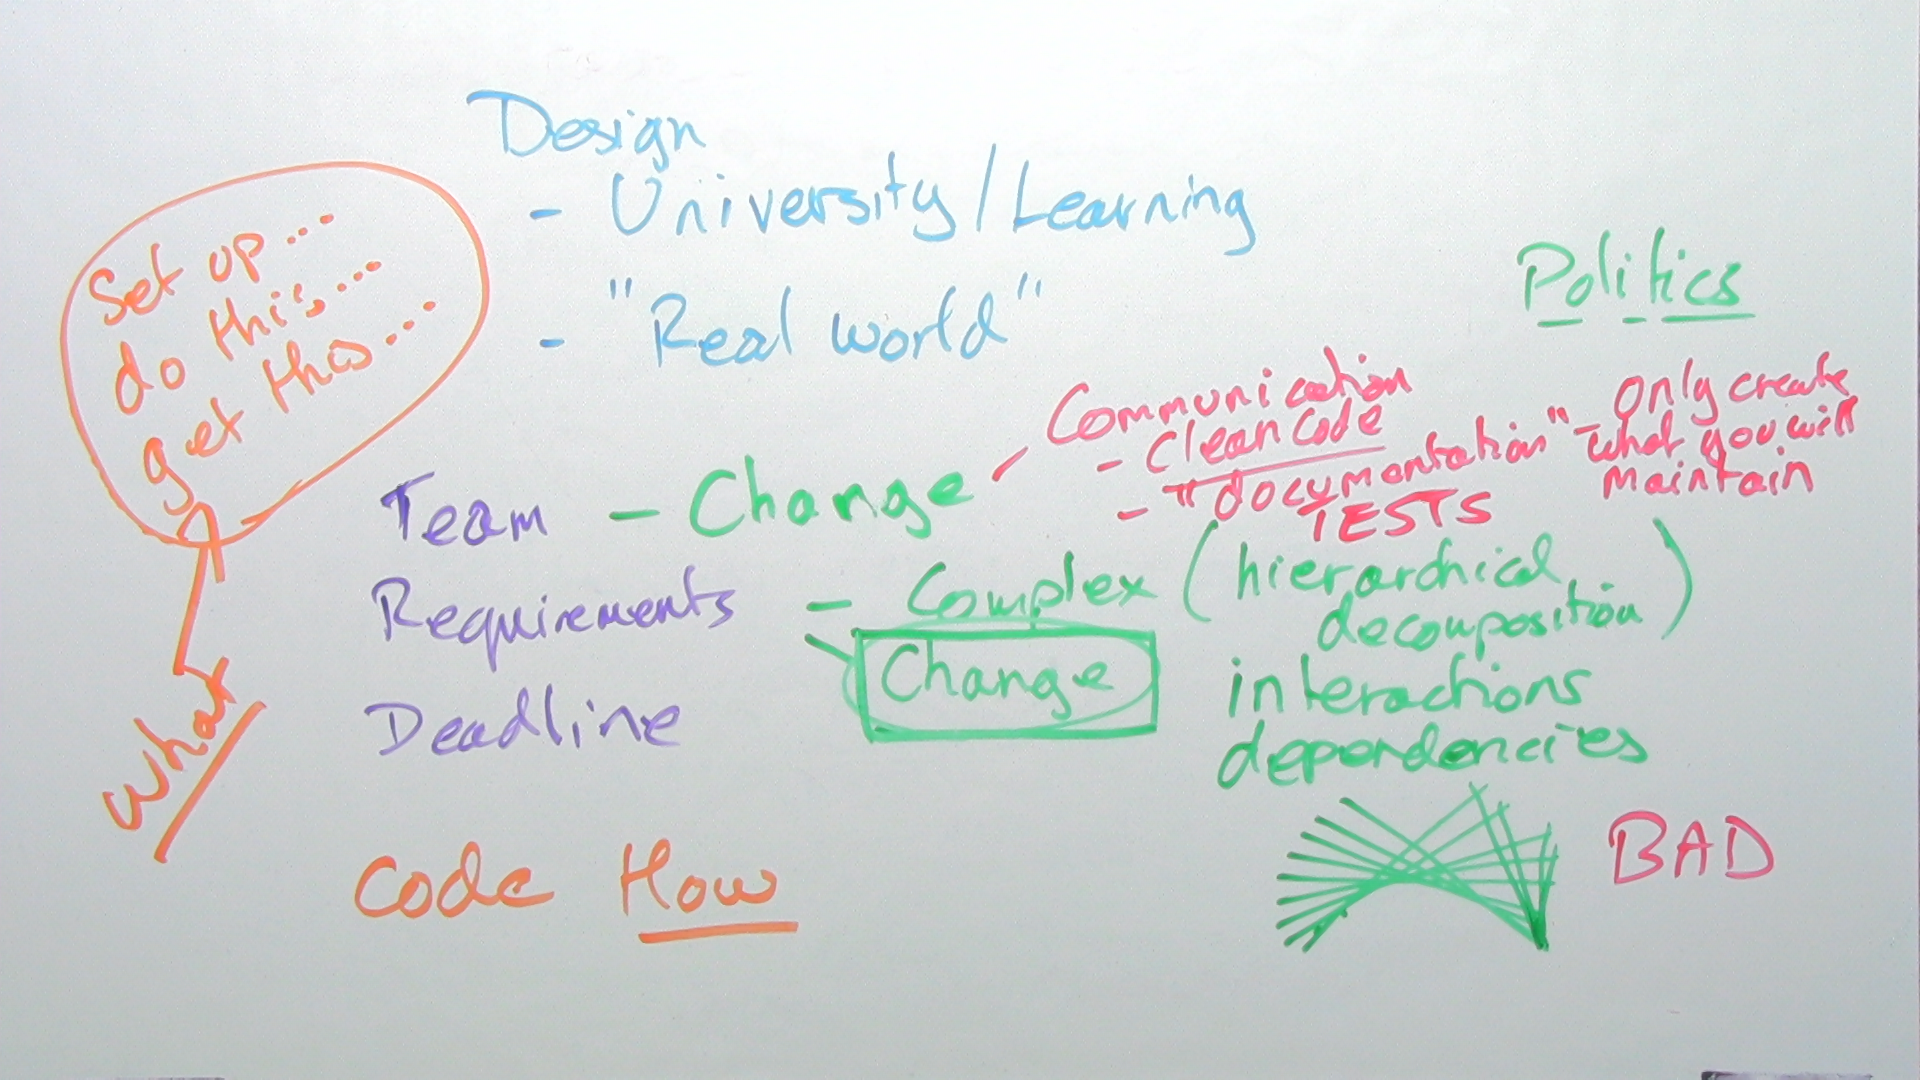 Design
- University/Learning
- "Real world"
Set up...
do this...
get this...
What
Politics
Team - Change - Communication
- Clean Code
- "documentation" - only create
what you will
maintain
TESTS
Requirements - Complex (hierarchical
decomposition)
Change
interactions
dependencies
Deadline
BAD
Code How